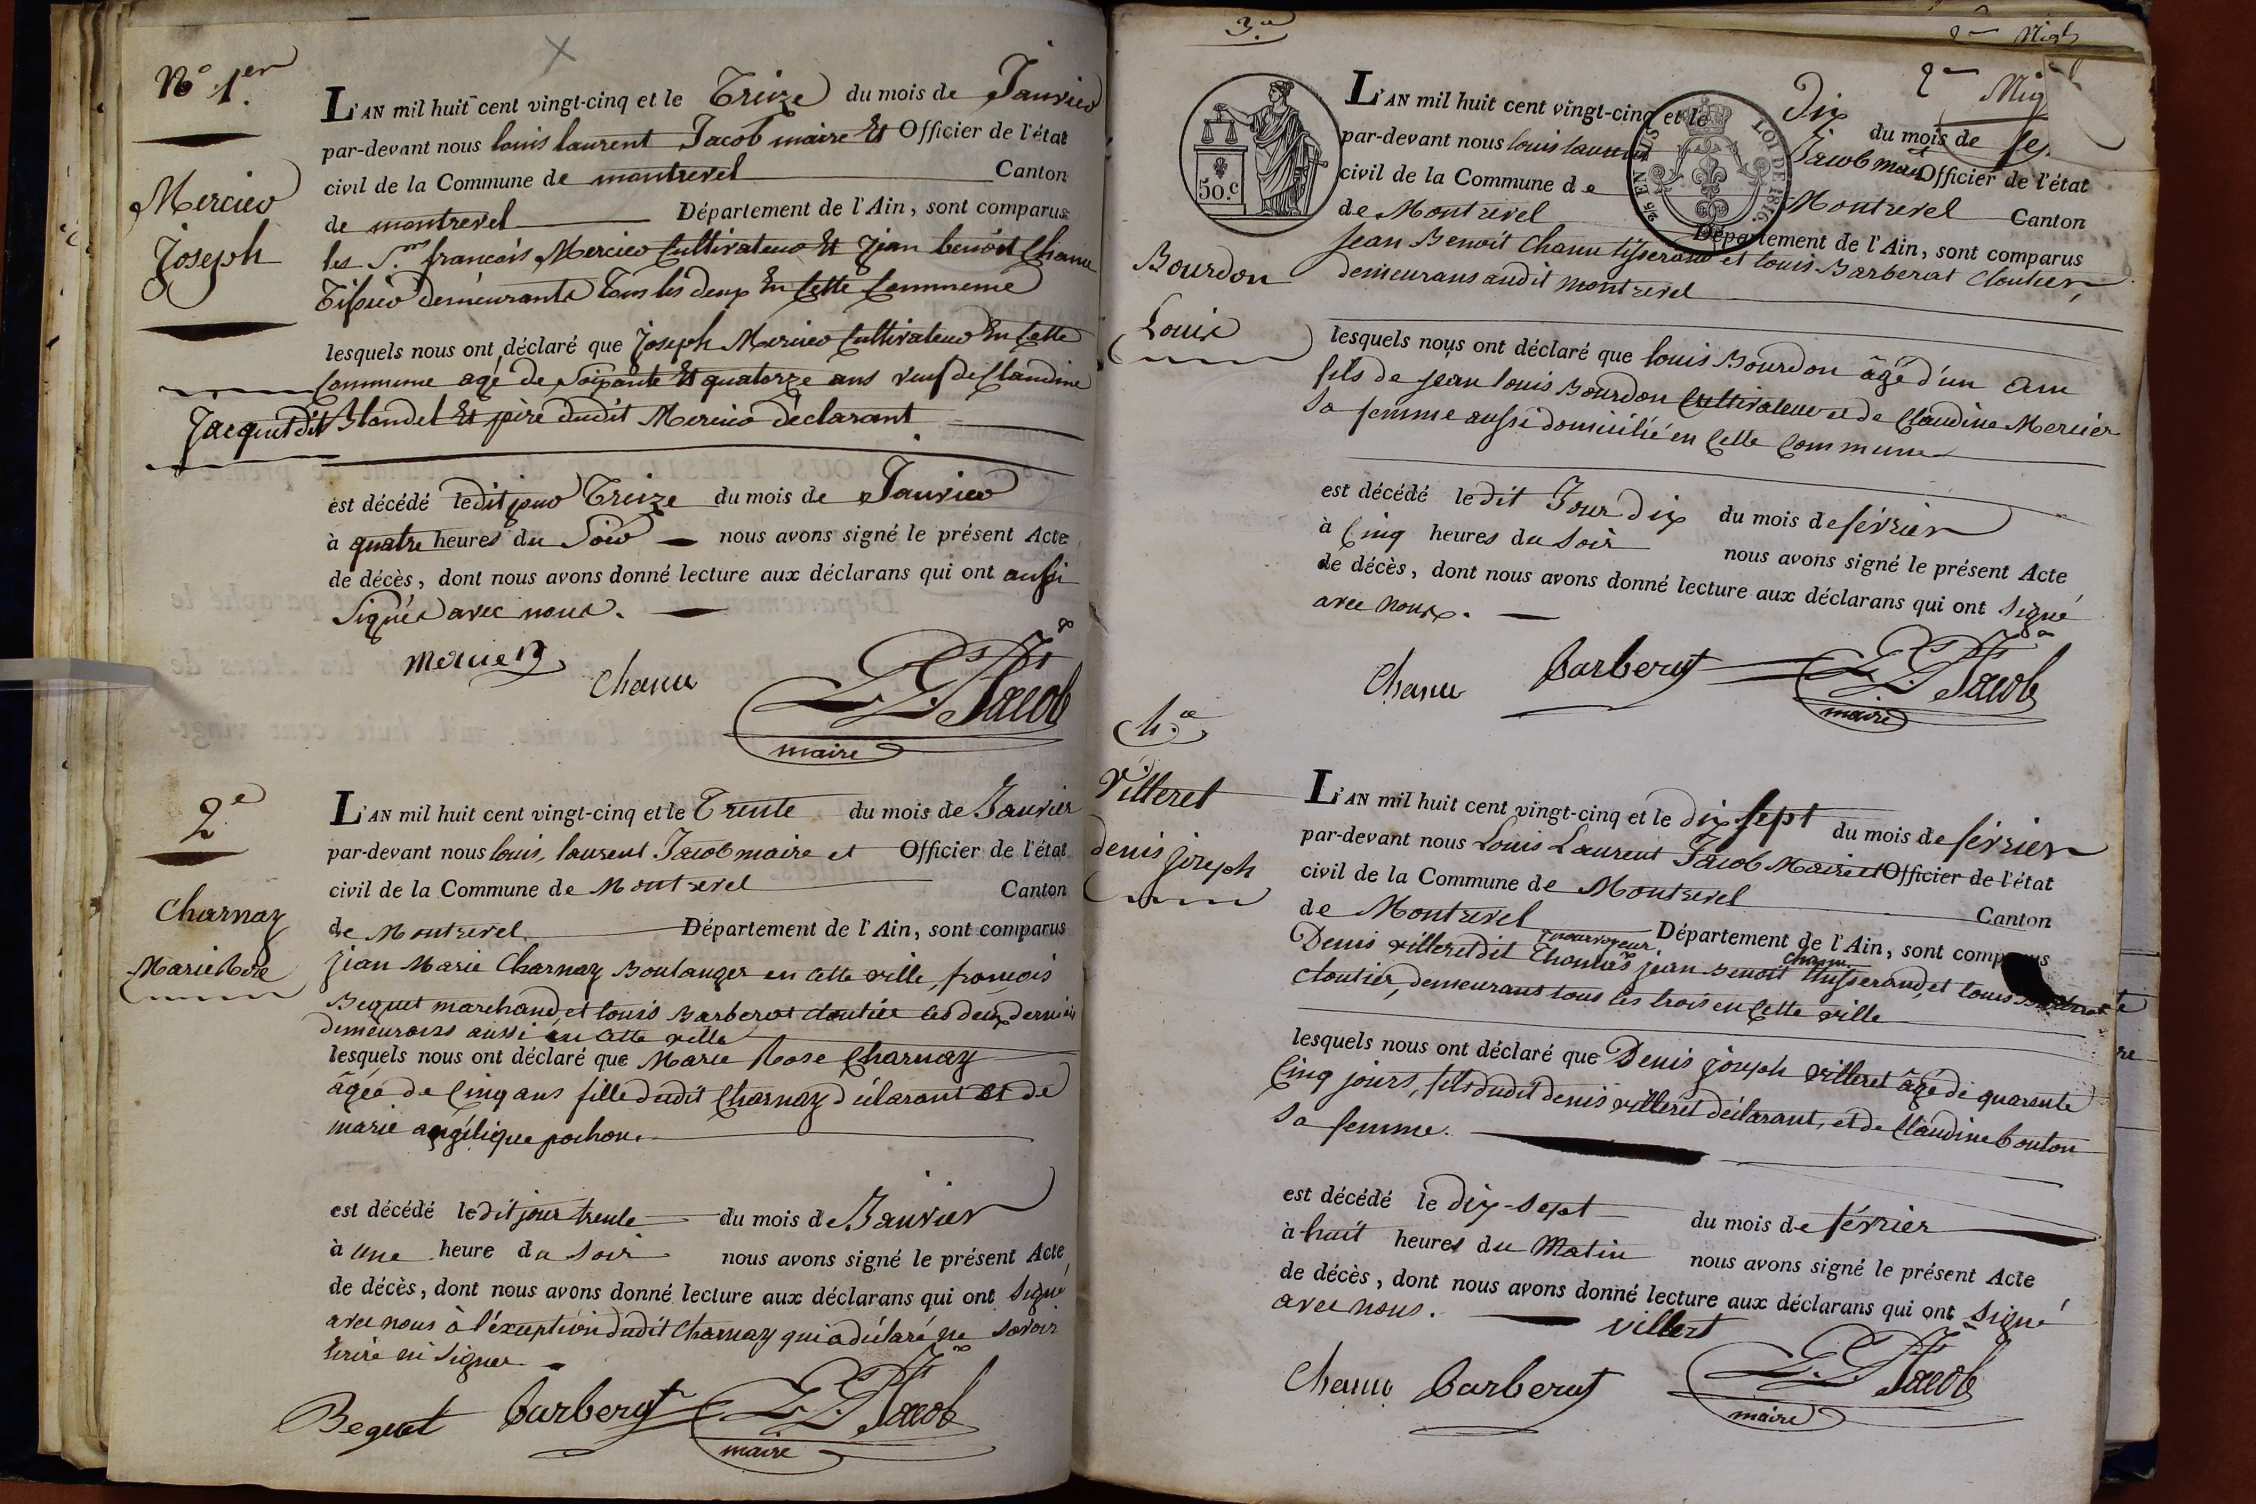 N° 1er
Mercier
Joseph
L'AN mil huit cent vingt-cinq et le Treize du mois de Janvier
par-devant nous louis laurent Jacob maire Et Officier de l'état
civil de la Commune de montrevel Canton
de montrevel Département de l'Ain, sont comparus
les Srs francois Mercier Cultivateur Et Jean benoit Chanu
Tissier demeurants Tous les deux En Cette Commune
lesquels nous ont déclaré que Joseph Mercier Cultivateur En Cette
Commune agé de Soixante Et quatorze ans veuf de Claudine
Jacquet dit Blondel Et père dudit Mercier déclarant
est décédé ledit jour Treize du mois de Janvier
à quatre heures du Soir nous avons signé le présent Acte
de décès, dont nous avons donné lecture aux déclarans qui ont aussi
Signés avec nous.
mercier
Chanu
L. L. Jacob
maire
2e
Charnay
Marie Rose
L'AN mil huit cent vingt-cinq et le Trente du mois de Janvier
par-devant nous louis, laurent Jacob maire et Officier de l'état
civil de la Commune de Montrevel Canton
de Montrevel Département de l'Ain, sont comparus
jean Marie Charnay Boulanger en cette ville, françois
Bequet marchand, et louis Barberat cloutier les deux derniers
demeurans aussi en cette ville
lesquels nous ont déclaré que Marie Rose Charnay
âgée de Cinq ans fille dudit Charnay déclarant et de
marie angélique pochon.
est décédé ledit jour trente du mois de Janvier
à une heure du Soir nous avons signé le présent Acte
de décès, dont nous avons donné lecture aux déclarans qui ont signé
avec nous à l'éxception dudit Charnay qui a déclaré ne savoir
Ecrire ni signer
Bequet
Barberat
L. L. Jacob
maire
3.e
50.c
LOI DE 1816.
Bourdon
Louis
L'AN mil huit cent vingt-cinq et le Dix du mois de
par-devant nous louis laurent Jacob maire Officier de l'état
civil de la Commune de Montrevel Canton
de Montrevel Département de l'Ain, sont comparus
Jean Benoit Chanu tisserand et louis Barberat Cloutier,
demeurans audit montrevel
lesquels nous ont déclaré que louis Bourdon âgé d'un an
fils de jean louis Bourdon Cultivateur et de Claudine Mercier
Sa femme aussi domicilié en Cette Commune
est décédé ledit Jour dix du mois de février
à Cinq heures du Soir nous avons signé le présent Acte
de décès, dont nous avons donné lecture aux déclarans qui ont signé
avec nous.
Chanu
Barberat
L. L. Jacob
maire
4.e
Villeret
denis joseph
L'AN mil huit cent vingt-cinq et le dix Sept du mois de février
par-devant nous Louis Laurent Jacob Maire et Officier de l'état
civil de la Commune de Montrevel Canton
de Montrevel Département de l'Ain, sont comparus
Denis villeret dit jean Benoit Chanu tisserand, et louis Barberat
cloutier, demeurans tous les trois en Cette ville
lesquels nous ont déclaré que Denis joseph villeret âgé de quarante
Cinq jours, fils dudit denis villeret déclarant, et de Claudine bonton
Sa femme.
est décédé le dix-sept du mois de février
à huit heures du Matin nous avons signé le présent Acte
de décès, dont nous avons donné lecture aux déclarans qui ont signé
avec nous.
villert
Chanu
Barberat
L. L. Jacob
maire